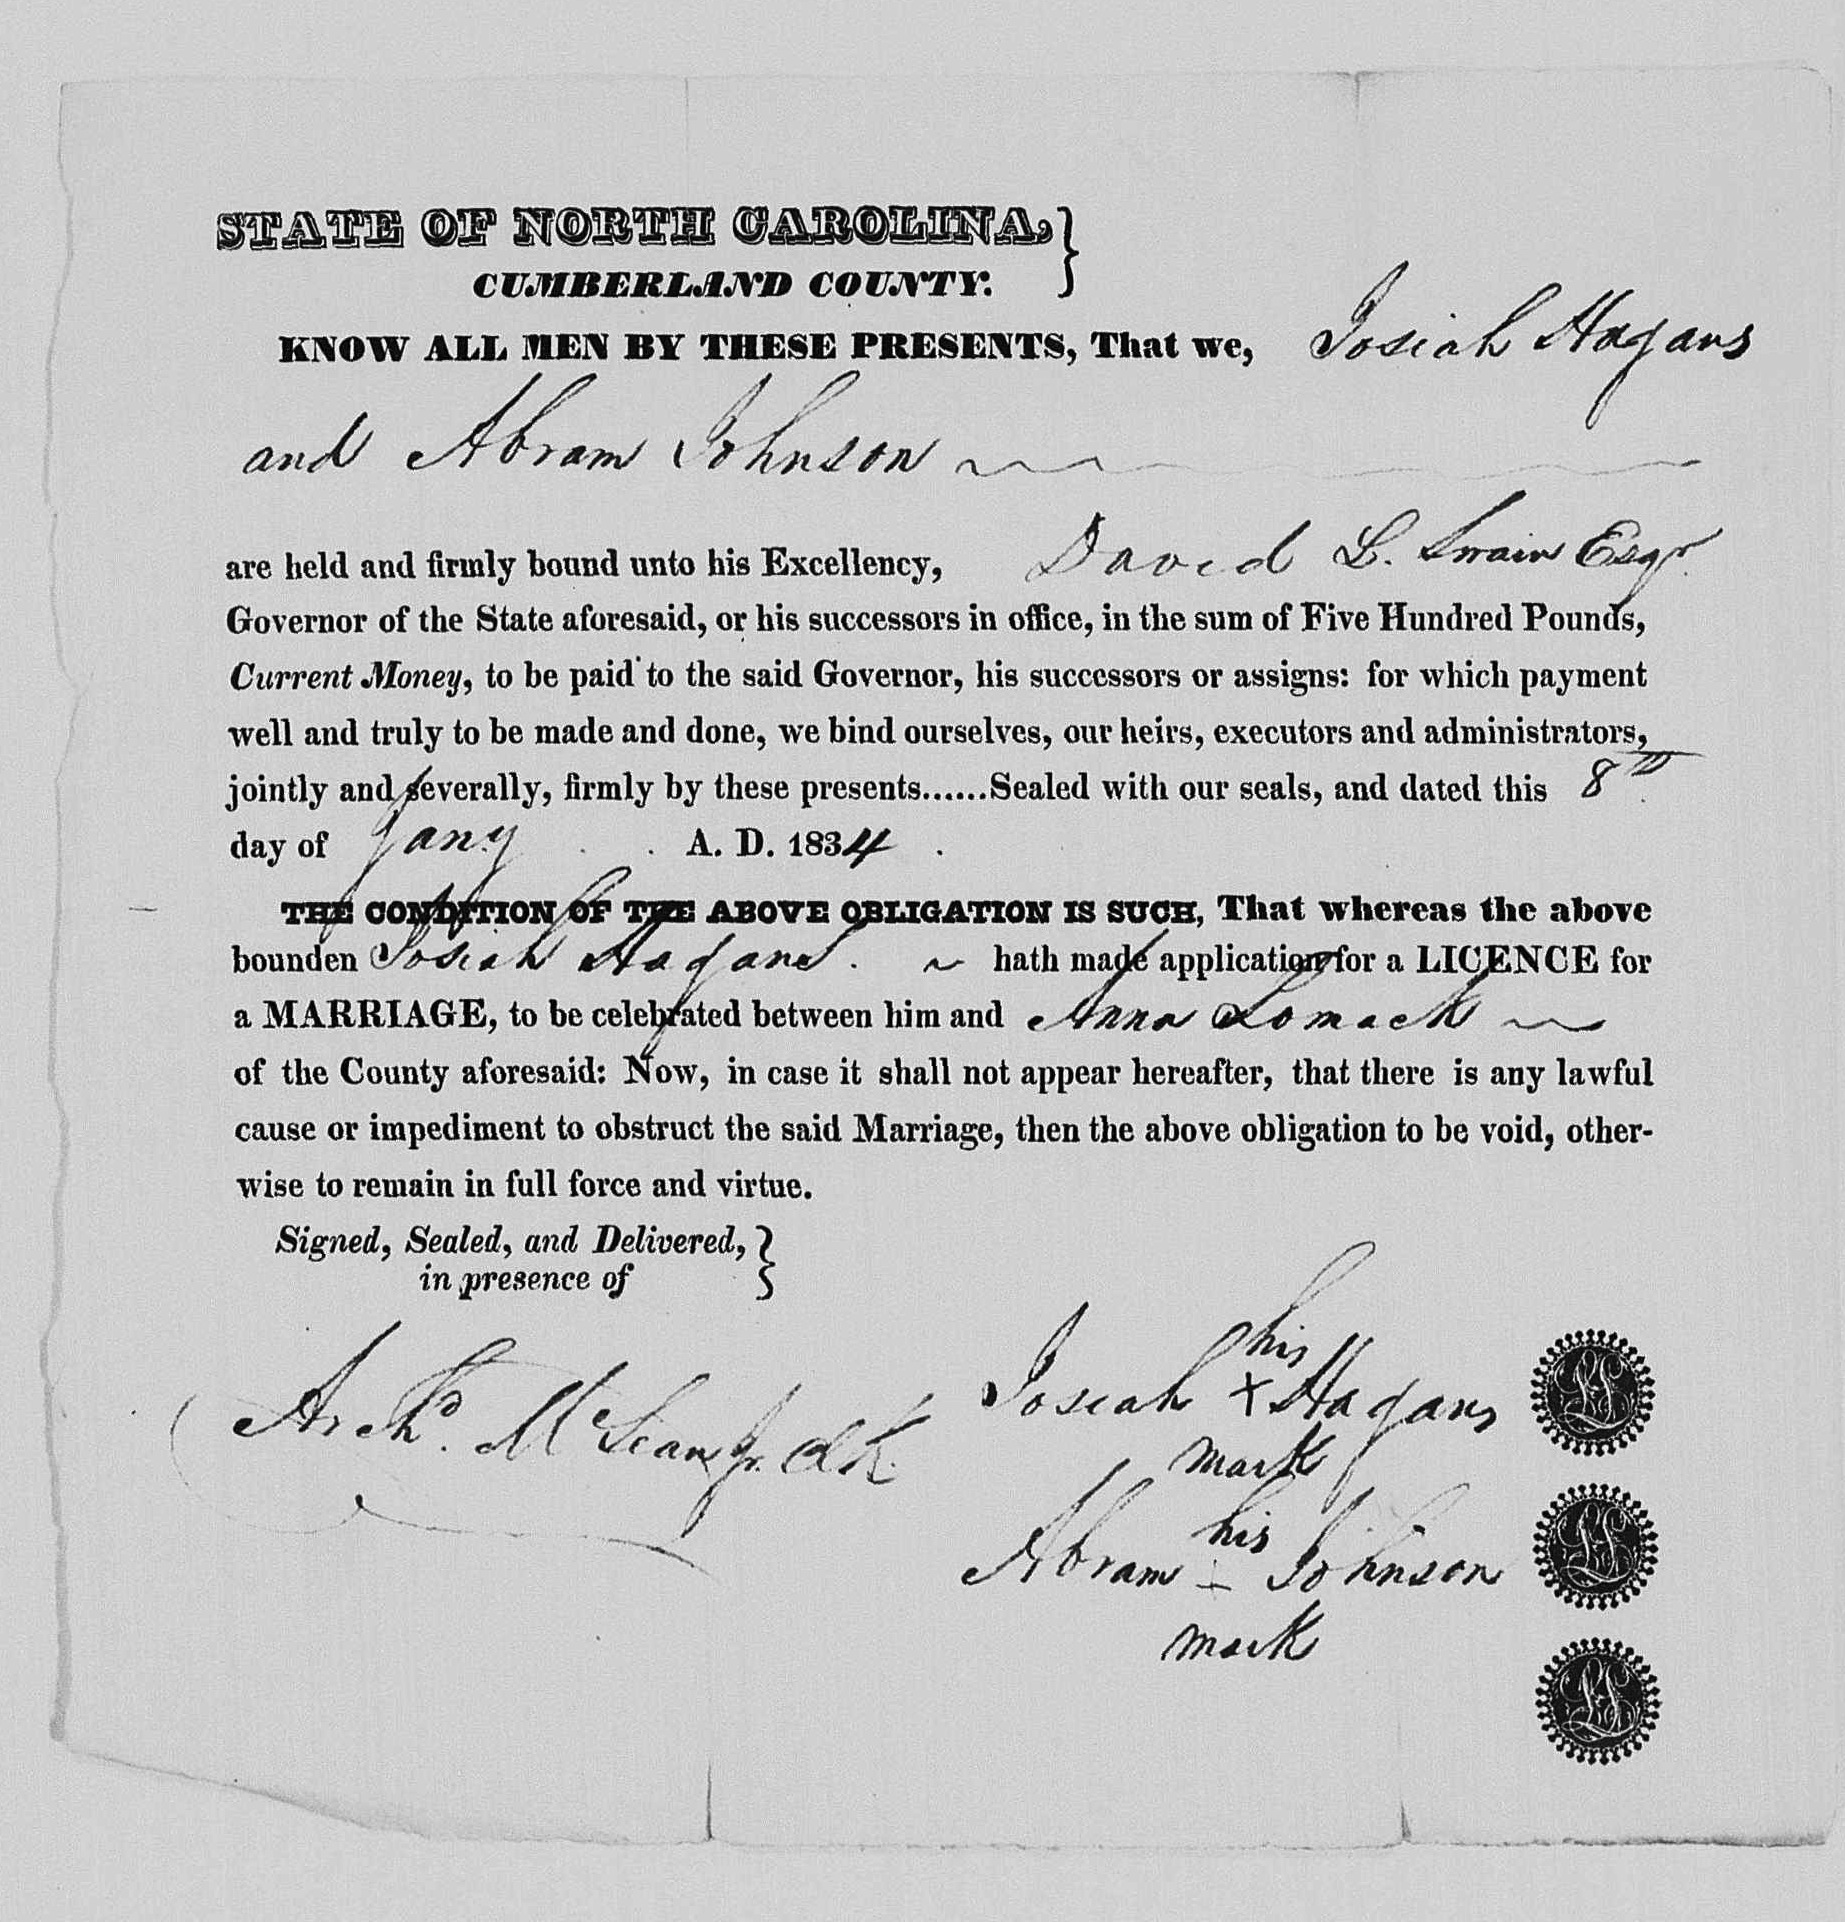 STATE OF NORTH CAROLINA, }
CUMBERLAND COUNTY.
KNOW ALL MEN BY THESE PRESENTS, That we, Josiah Hagans
and Abram Johnson
are held and firmly bound unto his Excellency, David L. Swain Esqr.
Governor of the State aforesaid, or his successors in office, in the sum of Five Hundred Pounds,
Current Money, to be paid to the said Governor, his successors or assigns: for which payment
well and truly to be made and done, we bind ourselves, our heirs, executors and administrators,
jointly and severally, firmly by these presents......Sealed with our seals, and dated this 8th
day of Jany A. D. 1834
THE CONDITION OF THE ABOVE OBLIGATION IS SUCH, That whereas the above
bounden Josiah Hagans. ~ hath made application for a LICENCE for
a MARRIAGE, to be celebrated between him and Anna Lomack ~
of the County aforesaid: Now, in case it shall not appear hereafter, that there is any lawful
cause or impediment to obstruct the said Marriage, then the above obligation to be void, other-
wise to remain in full force and virtue.
Signed, Sealed, and Delivered, }
in presence of
Archd. McLean Jr. Clk.
his
Josiah + Hagans
mark
his
Abram + Johnson
mark
LS
LS
LS